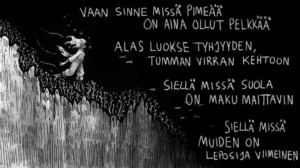 VAAN SINNE MISSÄ PIMEÄÄ
ON AINA OLLUT PELKKÄÄ
ALAS LUOKSE TYHJYYDEN,
TUMMAN VIRRAN KEHTOON
SIELLÄ MISSÄ SUOLA
ON MAKU MAITTAVIN
SIELLÄ MISSÄ
MUIDEN ON
LEPOSIJA VIIMEINEN